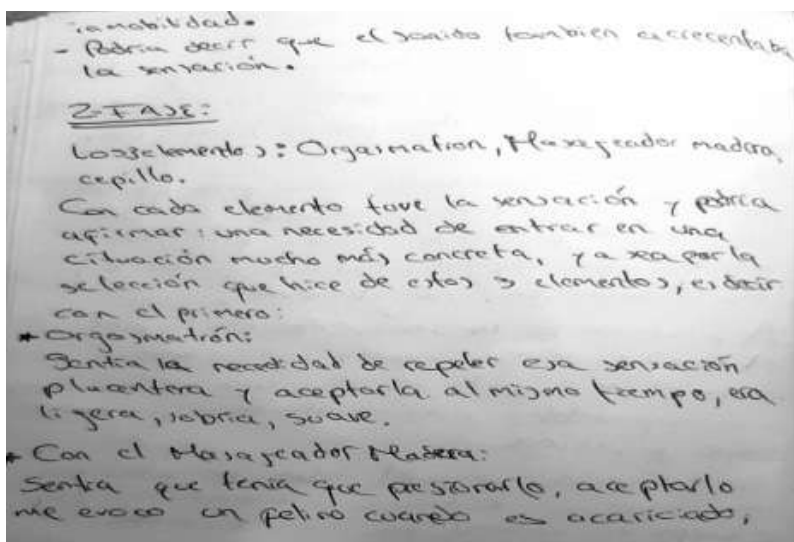 inmobilidad.
- Podria decir que el sonido tambien acrecentaba
la sensación.
2-FASE:
Los 3 elementos: Orgasmatron, Masageador madera,
cepillo.
Con cada elemento tuve la sensación y podria
afirmar: una necesidad de entrar en una
cituación mucho más concreta, ya sea por la
selección que hice de estos 3 elementos, es decir
con el primero:
* Orgasmatrón:
Sentia la necesidad de repeler esa sensación
placentera y aceptarla al mismo tiempo, era
ligera, sobria, suave.
* Con el Masageador Madera:
Sentia que tenia que presionarlo, aceptarlo
me evoco un felino cuando es acariciado,